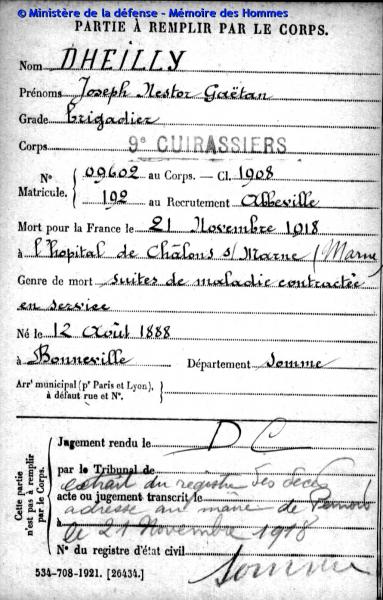 © Ministère de la défense - Mémoire des Hommes
PARTIE À REMPLIR PAR LE CORPS.
Nom DHEILLY
Prénoms Joseph Nestor Gaëtan
Grade brigadier
Corps 9e CUIRASSIERS
N° Matricule. { 09602 au Corps. — Cl. 1908
192 au Recrutement Abbeville
Mort pour la France le 21 Novembre 1918
à l'hopital de Châlons s/Marne (Marne)
Genre de mort suites de maladie contractée
en service
Né le 12 Août 1888
à Bonneville Département Somme
Arrt municipal (pr Paris et Lyon), à défaut rue et N°. {
Cette partie n'est pas à remplir par le Corps.
Jugement rendu le D C
par le Tribunal de
extrait du registre des décès
acte ou jugement transcrit le
adressé au maire de
à le 21 Novembre 1918
N° du registre d'état civil
Somme
534-708-1921. [26434.]